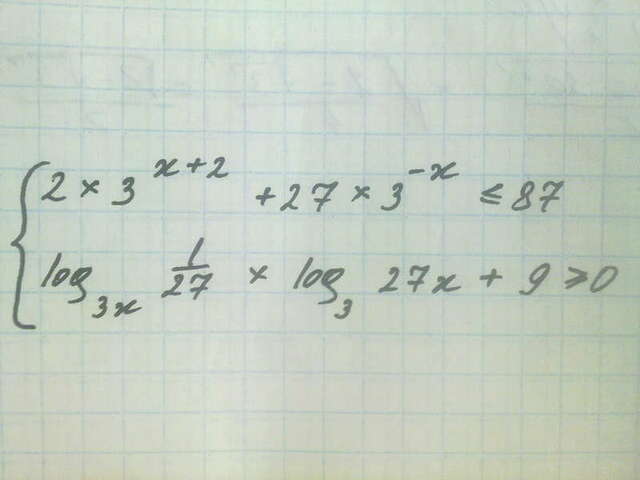 2 × 3^{x+2} + 27 × 3^{-x} ≤ 87
log_{3x} \frac{1}{27} × log_{3} 27x + 9 ≥ 0